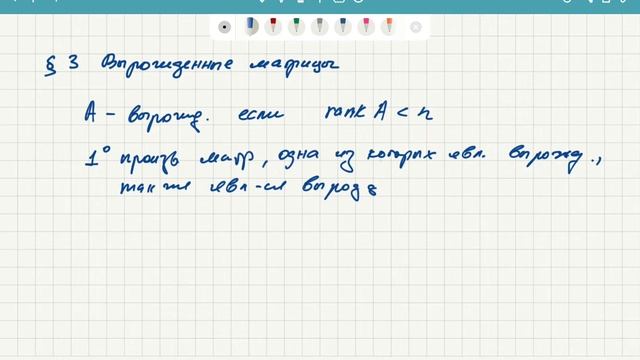 § 3 Вырожденные матрицы
A - вырожд. если rank A < n
1° произв матр, одна из которых явл. вырожд.,
также явл-ся вырожд